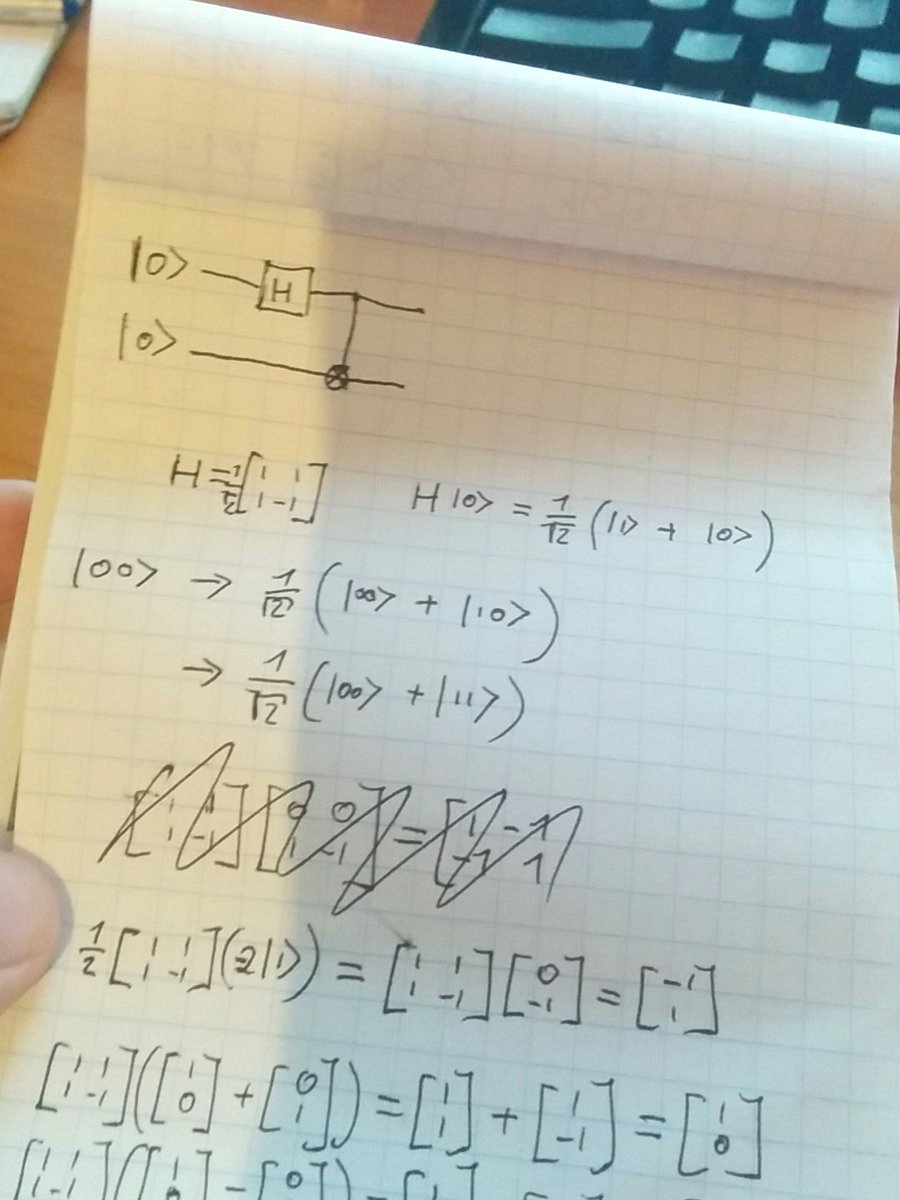 |0> H
|0>
H = 1/√2 [1 1; 1 -1] H|0> = 1/√2 (|1> + |0>)
|00> → 1/√2 (|00> + |10>)
→ 1/√2 (|00> + |11>)
1/2 [1 1; 1 -1] (2|1>) = [1 1; 1 -1] [0; -1] = [-1; 1]
[1 1; 1 -1] ([1; 0] + [0; 1]) = [1; 1] + [1; -1] = [1; 0]